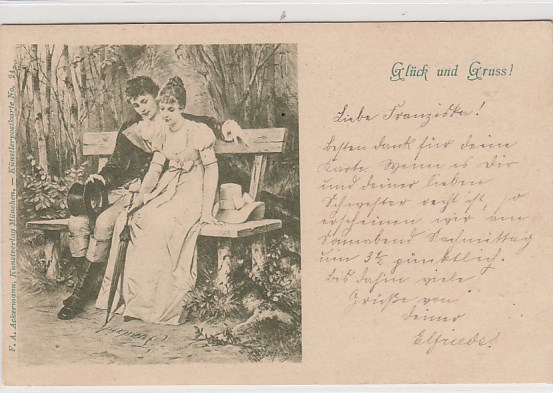 Glück und Gruss!
Liebe Franziska!
besten Dank für deine
Karte. Wenn es Dir
und deiner lieben
Schwester recht ist, so
erscheinen wir am
Sonnabend Nachmittag
um 3½ pünktlich.
Bis dahin viele
Grüße von
Deiner
Elfriede!
F. A. Ackermann, Kunstverlag München. — Künstlerpostkarte No. 24.